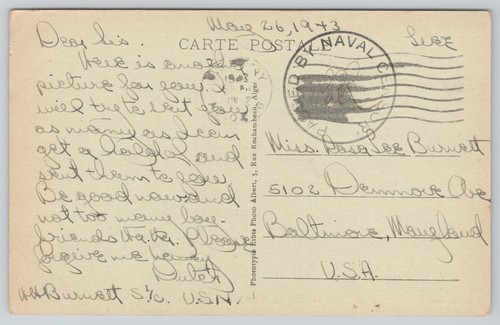 May 26, 1943
CARTE POSTALE
Free
PASSED BY NAVAL CENSOR
Dear Sis.
Here is another
picture for you. I
will try to get you
as many as I can
get a hold of and
send them to you.
Be good now and
not too many boy-
friends Ha Ha. Please
forgive me honey
Dutch
Burnett S 1/c. U.S.N.
Phototypie Entes Photo Albert, 5, Rue Rochambeau, Alger
Miss. Rosa Lee Burnett
5102 Denmore Ave
Baltimore, Maryland
U.S.A.